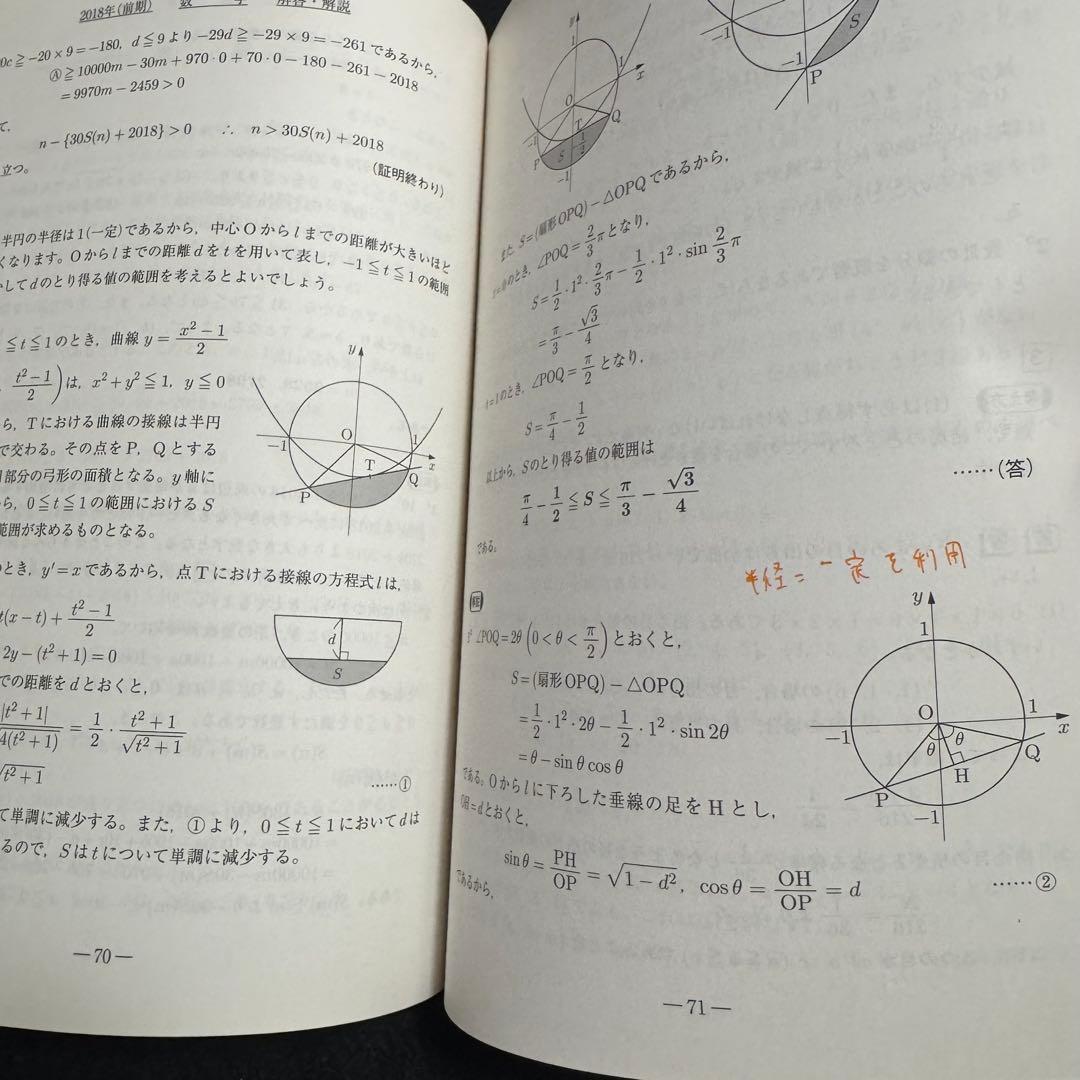 2018年(前期) 数 学 解答・解説
0c≧−20×9=−180, d≦9 より −29d≧−29×9=−261 であるから,
Ⓐ≧10000m−30m+970·0+70·0−180−261−2018
=9970m−2459>0
て,
n−{30S(n)+2018}>0 ∴ n>30S(n)+2018
立つ。
(証明終わり)
半円の半径は1(一定)であるから, 中心Oからlまでの距離が大きいほど
くなります。Oからlまでの距離dをtを用いて表し, −1≦t≦1の範囲
してdのとり得る値の範囲を考えるとよいでしょう。
≦t≦1のとき, 曲線 y=(x²−1)/2
(t²−1)/2)は, x²+y²≦1, y≦0
ら, Tにおける曲線の接線は半円
で交わる。その点をP, Qとする
部分の弓形の面積となる。y軸に
ら, 0≦t≦1の範囲におけるS
範囲が求めるものとなる。
y
O
−1
1
x
T
P
Q
のとき, y′=xであるから, 点Tにおける接線の方程式lは,
t(x−t)+(t²−1)/2
2y−(t²+1)=0
での距離をdとおくと,
d
S
|t²+1|/4(t²+1)=1/2·(t²+1)/√(t²+1)
√(t²+1)
……①
て単調に減少する。また, ①より, 0≦t≦1においてdは
るので, Sはtについて単調に減少する。
—70—
y
1
1
x
O
T
Q
P
S
1/2
−1
S
−1
P
また, S=(扇形OPQ)−△OPQであるから,
t=0のとき, ∠POQ=2/3πとなり,
S=1/2·1²·2/3π−1/2·1²·sin2/3π
=π/3−√3/4
t=1のとき, ∠POQ=π/2となり,
S=π/4−1/2
以上から, Sのとり得る値の範囲は
π/4−1/2≦S≦π/3−√3/4
……(答)
である。
半径=一定を利用
∠POQ=2θ(0<θ<π/2)とおくと,
S=(扇形OPQ)−△OPQ
=1/2·1²·2θ−1/2·1²·sin2θ
=θ−sinθcosθ
である。Oからlに下ろした垂線の足をHとし,
OH=dとおくと,
y
1
O
1
x
−1
θ
θ
Q
H
P
−1
sinθ=PH/OP=√(1−d²), cosθ=OH/OP=d
……②
であるから,
—71—